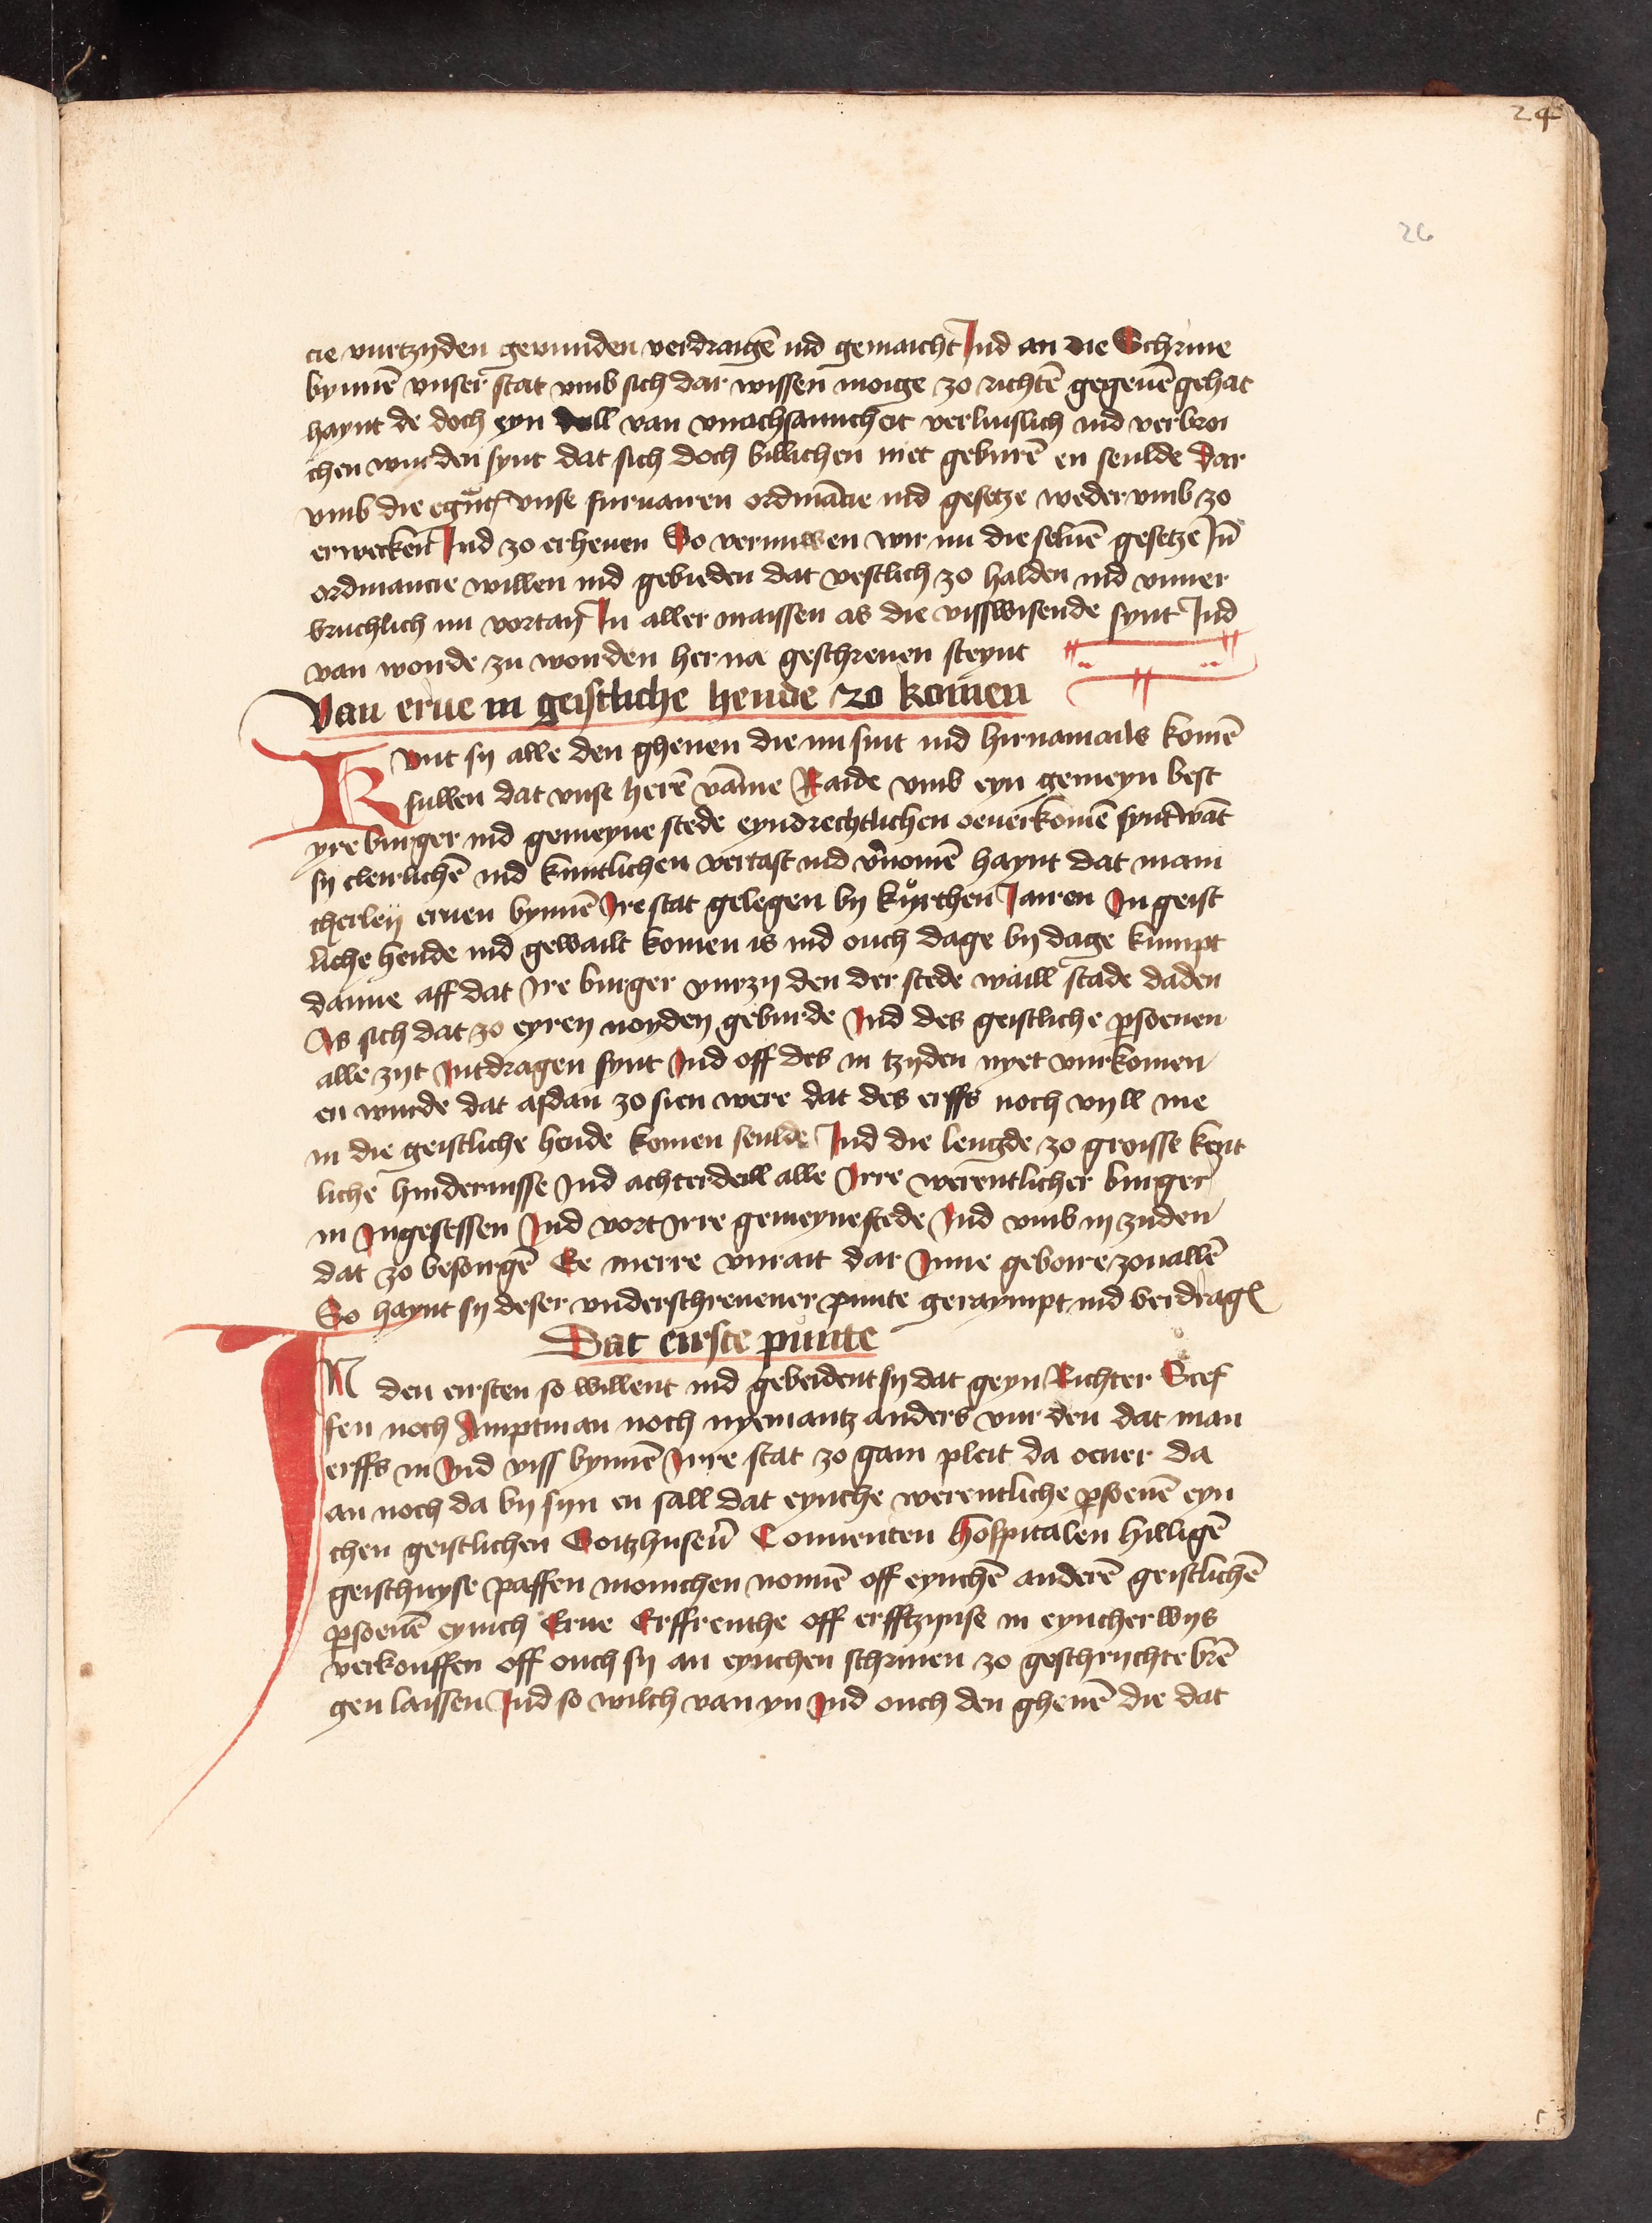 24
26
cie vurtzyden gevunden verdragē ind gemaicht Ind an die Schrine
bynnē vnser stat vmb sich dar wissen moige zo richtē gegeuē gehat
haynt de doch eyn deill van vnachsamicheit verluislich ind verbro
chen wurden synt dat sich doch billichen niet geburē en seulde Dar
vmb die vnse furuaren ordināncie ind gesetze weder vmb zo
erwecken Ind zo erheuen So vernuwen wir nu die seluē gesetze Iñ
ordinancie willen ind gebieden dat vestlich zo halden ind vnuer
bruchlich nu vortan In aller maissen as die vsswisende synt Ind
van worde zu worden her na geschreuen steynt
Van erue in geistliche hende zo komen
Kunt sy alle den ghenen die nu sint ind hirnamails komē
sullen dat vnse herē vāme Raide vmb eyn gemeyn best
yre burger ind gemeyne stede eyndrechtlichen oeuerkomē synt wāt
sy cleirlichē ind kuntlichen vertast ind v̄nomē haynt dat mani
cherleij eruen bynnē Ire stat gelegen by kůrthen Jairen In geist
liche hende ind gewailt komen is ind ouch dage by dage kumpt
danne aff dat Ire burger vurzyden der stede waill stade daden
As sich dat zo eyren noyden geburde Ind des geistliche psoenen
alle zijt Intdragen synt Ind off des in tzyden nyet vurkomen
en wurde dat asdan zo sien were dat des erffs noch vyll me
in die geistliche hende komen seulde Ind die lengde zo groisse kent
liche hindernisse Ind achterdeill alle Irre werentlicher burger
in Ingesessen Ind vort Irre gemeyne stede Ind vmb in zijden
dat zo besorgē Ee merre vnrait dar Inne geboire zouallē
So haynt sy deser vnderschreuener punte geraympt ind verdragē
Dat eirste punte
IN den eirsten so willent ind gebeident sy dat geyn Richter Scef
fen noch Amptman noch nyemantz anders vur den dat man
erffs in Ind vss bynnē Irre stat zo gain pleit da oeuer da
an noch da by syn en sall dat eynche werentliche psoenē eyn
chen geistlichen Goitzhuserē Conuenten Hospitalen hilligē
geisthuyse paffen moinchen nonnē off eynchē anderē geistlichē
psoenē eynich Erue Erffrenthe off erfftzynse in eyncher wijs
verkouffen off ouch sy an eynchen schrinen zo geschrychte brē
gen laissen Ind so wilch van yn Ind ouch den ghenē die dat